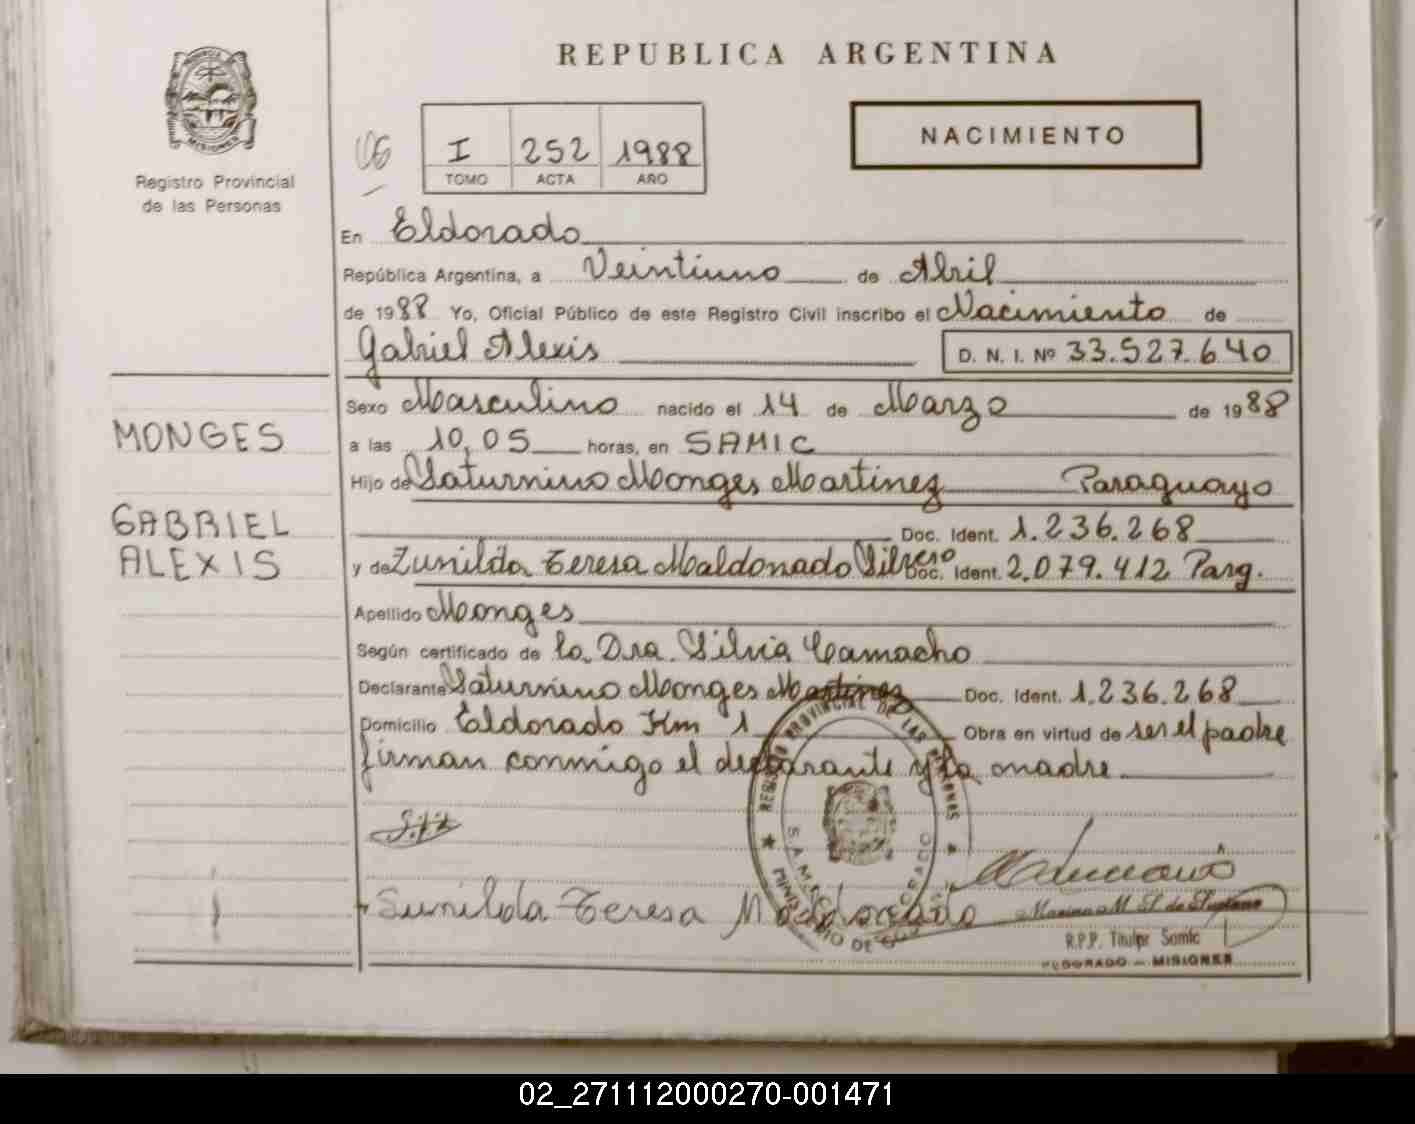 REPUBLICA ARGENTINA
PROVINCIA
MISIONES
Registro Provincial
de las Personas
I 252 1988
TOMO ACTA AÑO
NACIMIENTO
En Eldorado
República Argentina, a Veintiuno de Abril
de 1988 Yo, Oficial Público de este Registro Civil inscribo el Nacimiento de
Gabriel Alexis D. N. I. Nº 33.527.640
Sexo Masculino nacido el 14 de Marzo de 1988
MONGES
a las 10,05 horas, en SAMIC
Hijo de Saturnino Monges Martinez Paraguayo
GABRIEL
ALEXIS
Doc. Ident. 1.236.268
y de Zunilda Teresa Maldonado Silvero Doc. Ident. 2.079.412 Parg.
Apellido Monges
Según certificado de la Dra. Silvia Camacho
Declarante Saturnino Monges Martinez Doc. Ident. 1.236.268
Domicilio Eldorado Km 1 Obra en virtud de ser el padre
firman conmigo el declarante y la madre
REGISTRO PROVINCIAL DE LAS PERSONAS
Sunilda Teresa Maldonado
R.P.P. Titular Samic
ELDORADO - MISIONES
02_271112000270-001471